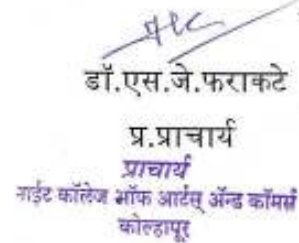 डॉ.एस.जे.फराकटे
प्र.प्राचार्य
प्राचार्य
नाईट कॉलेज ऑफ आर्टस् ॲन्ड कॉमर्स
कोल्हापूर